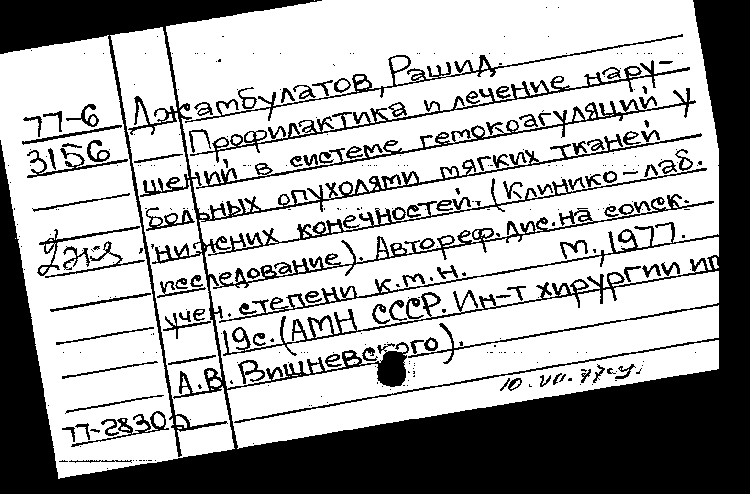 77-6
3156
Джамбулатов, Рашид.
Профилактика и лечение нару-
шений в системе гемокоагуляций у
больных опухолями мягких тканей
нижних конечностей. (Клинико-лаб.
исследование). Автореф. дис. на соиск.
учен. степени к.м.н. М., 1977.
19с. (АМН СССР. Ин-т хирургии им
А.В. Вишневского).
2 экз.
77-28302
10.VII.77